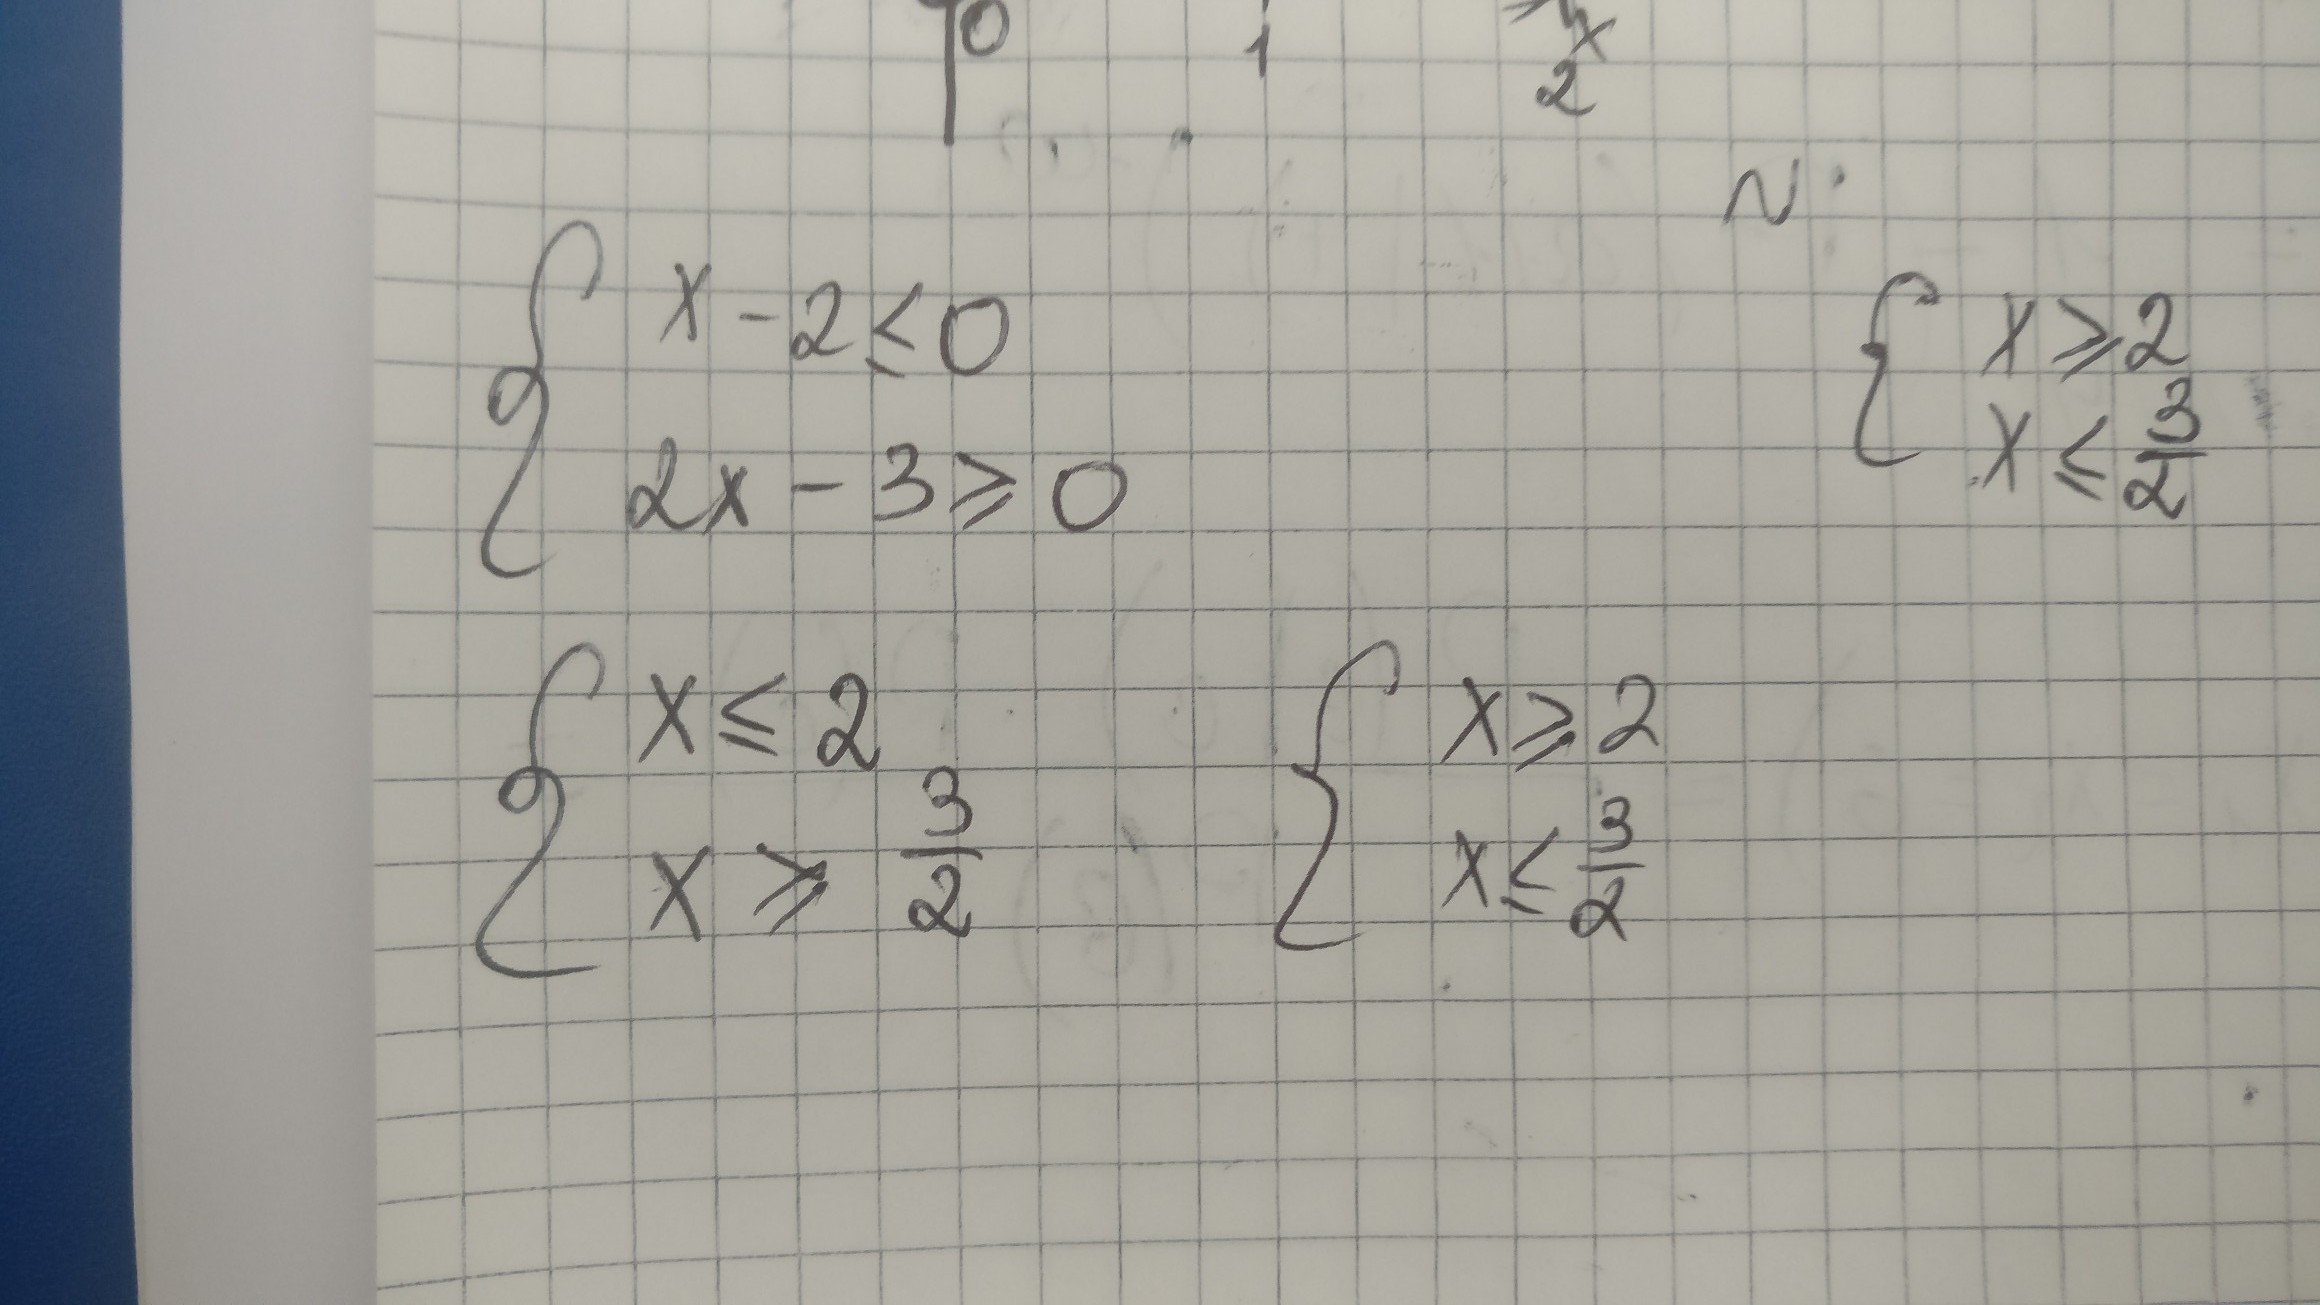 0 1 x
2
N
x - 2 ≤ 0
2x - 3 ≥ 0
x ≥ 2
x ≤ 3/2
x ≤ 2
x ≥ 3/2
x ≥ 2
x ≤ 3/2